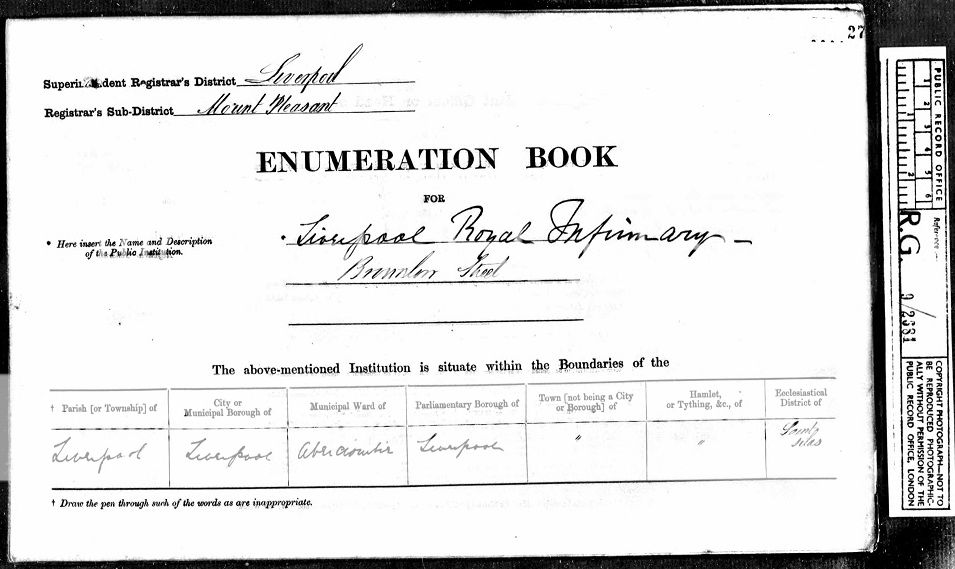 27
Superintendent Registrar's District Liverpool
Registrar's Sub-District Mount Pleasant
ENUMERATION BOOK
FOR
* Here insert the Name and Description
of the Public Institution.
* Liverpool Royal Infirmary –
Brownlow Street
The above-mentioned Institution is situate within the Boundaries of the
† Parish [or Township] of
City or
Municipal Borough of
Municipal Ward of
Parliamentary Borough of
Town [not being a City
or Borough] of
Hamlet,
or Tything, &c., of
Ecclesiastical
District of
Liverpool
Liverpool
Abercrombie
Liverpool
"
"
Saint
Silas
† Draw the pen through such of the words as are inappropriate.
PUBLIC RECORD OFFICE
1
2
3
4
5
6
1
2
Reference:—
R.G. 9/2681
COPYRIGHT PHOTOGRAPH—NOT TO
BE REPRODUCED PHOTOGRAPHIC-
ALLY WITHOUT PERMISSION OF THE
PUBLIC RECORD OFFICE, LONDON